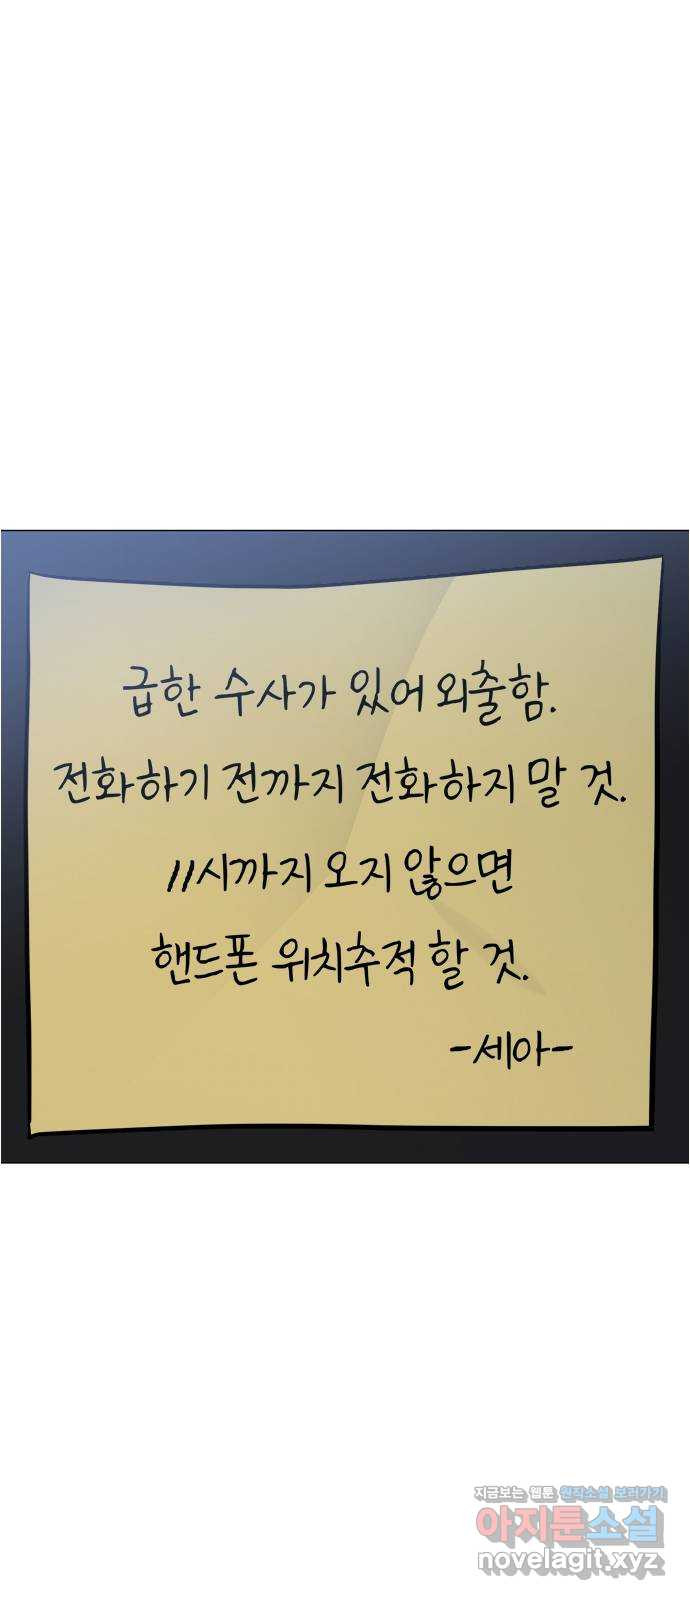 급한 수사가 있어 외출함.
전화하기 전까지 전화하지 말 것.
11시까지 오지 않으면
핸드폰 위치추적 할 것.
-세아-
지금보는 웹툰 원작소설 보러가기
아지툰소설
novelagit.xyz